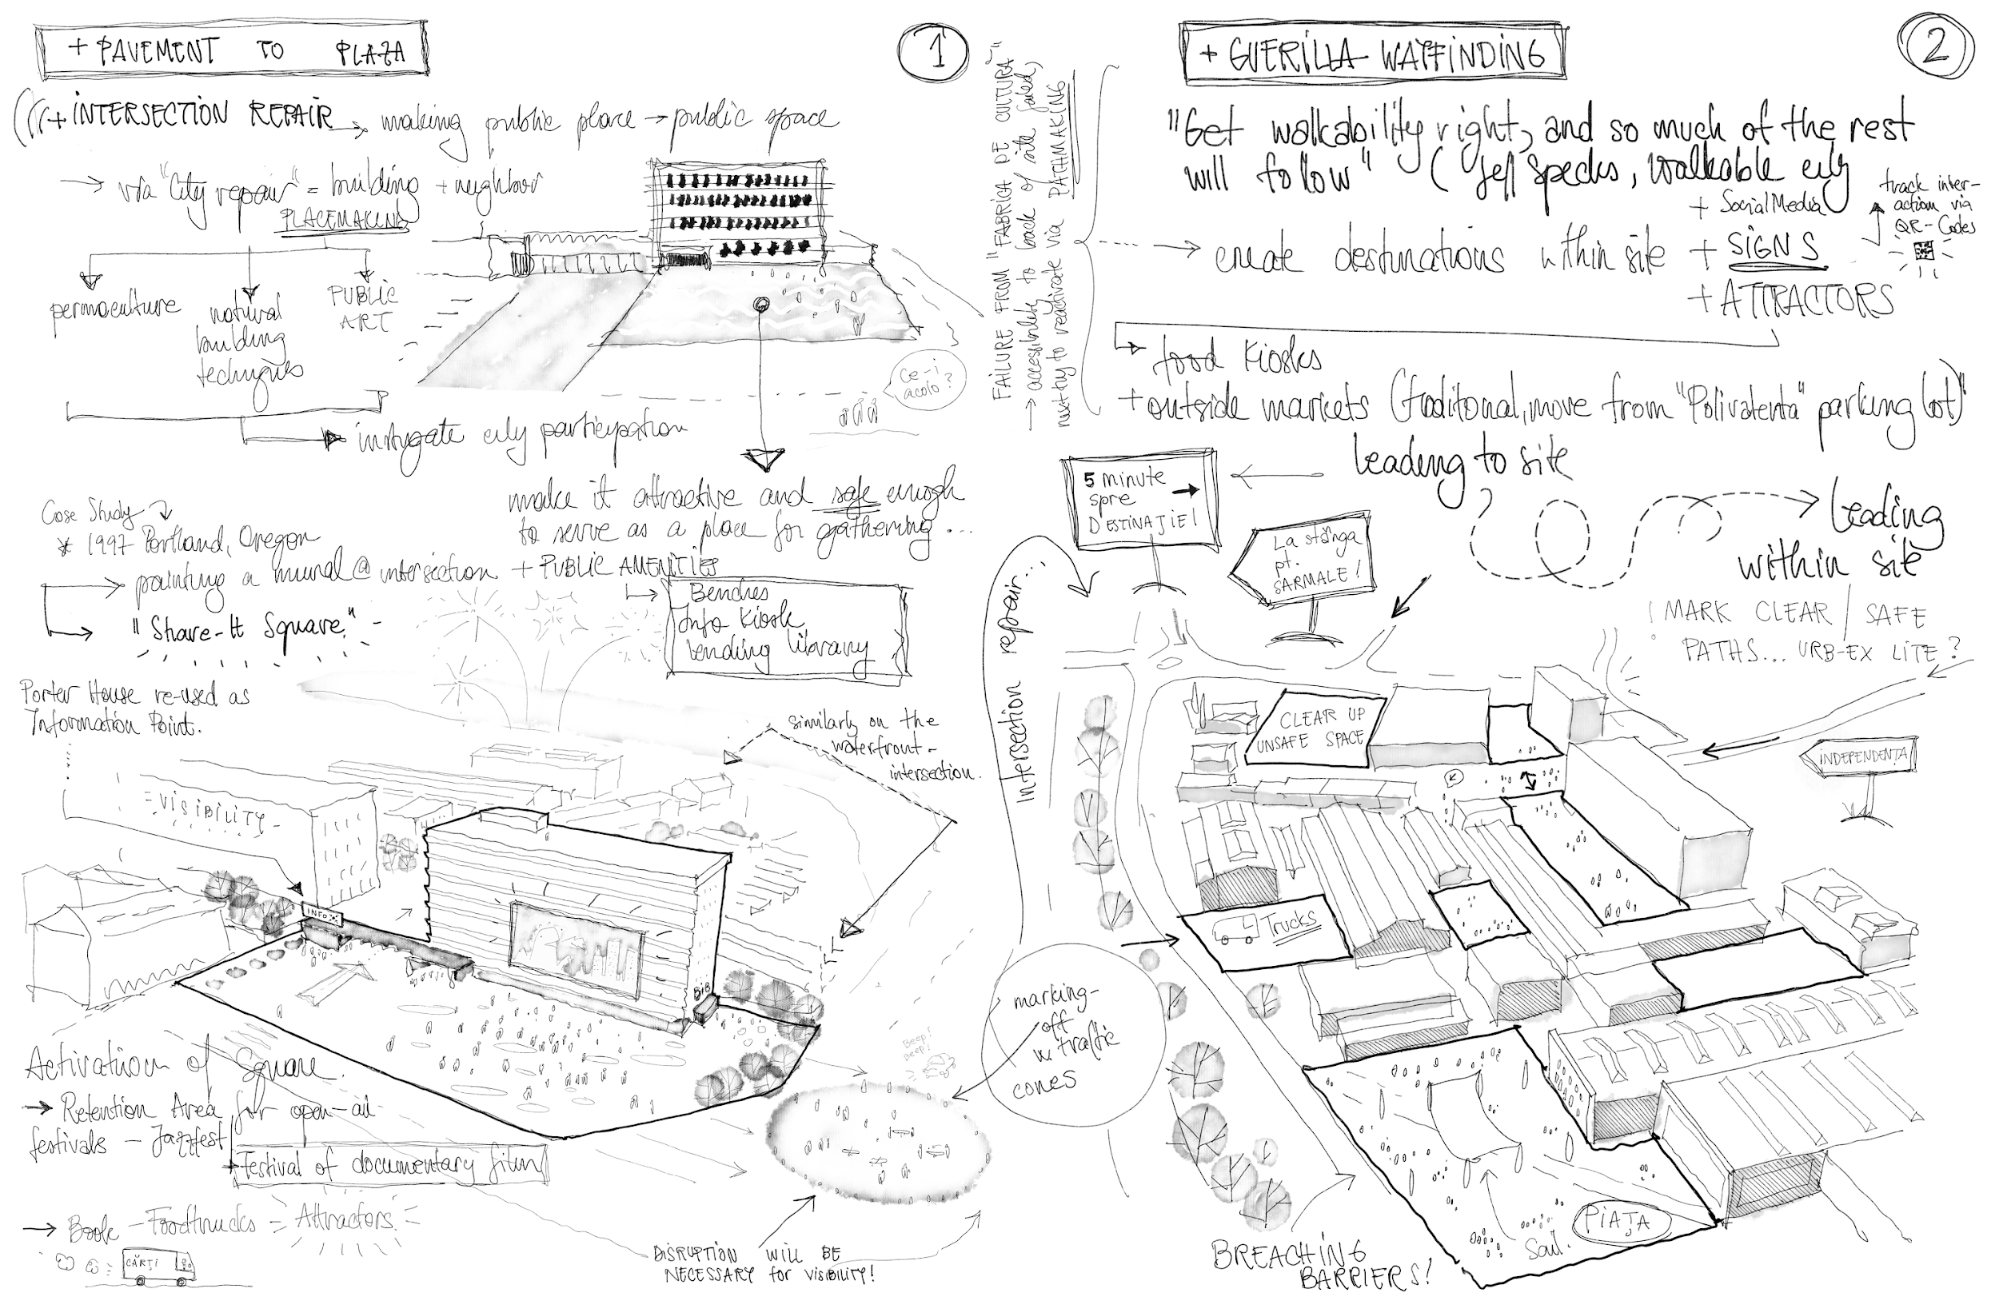 + PAVEMENT TO PLAZA
1
+ INTERSECTION REPAIR → making public place → public space
→ via "City repair" = building + neighbor
PLACEMAKING
permaculture
natural
building
techniques
PUBLIC
ART
Ce-i
acolo?
instigate city participation
make it attractive and safe enough
to serve as a place for gathering...
+ PUBLIC AMENITIES
Benches
Info Kiosk
Lending library
Case Study
* 1997 Portland, Oregon
painting a mural @ intersection
"Share-It Square"
Porter House re-used as
Information Point.
similarly on the
waterfront-
intersection.
= VISIBILITY -
INFO
BiB
Activation of Square.
→ Retention Area for open-air
festivals - Jazzfest
+ Festival of documentary film
→ Book - Foodtrucks = Attractors
CĂRȚI
Beep!
Beep!
DISRUPTION WILL BE
NECESSARY for VISIBILITY!
FAILURE FROM "FABRICA DE CULTURA"
→ accessibility to back of site failed,
must try to reactivate via PATHMAKING
+ GUERILLA WAYFINDING
2
"Get walkability right, and so much of the rest
will follow" (Jeff Specks, Walkable city
→ create destinations within site
+ Social Media
+ SIGNS
+ ATTRACTORS
track inter-
action via
QR-Codes
food kiosks
+ outside markets (traditional, move from "Polivalenta" parking lot)"
leading to site
5 minute
spre
DESTINAȚIE!
La stânga
pt.
SARMALE!
leading
within site
! MARK CLEAR / SAFE
PATHS... URB-EX LITE?
Intersection repair...
CLEAR UP
UNSAFE SPACE
INDEPENDENȚA
Trucks
marking-
off
w traffic
cones
PIAȚA
Sail.
BREACHING
BARRIERS!